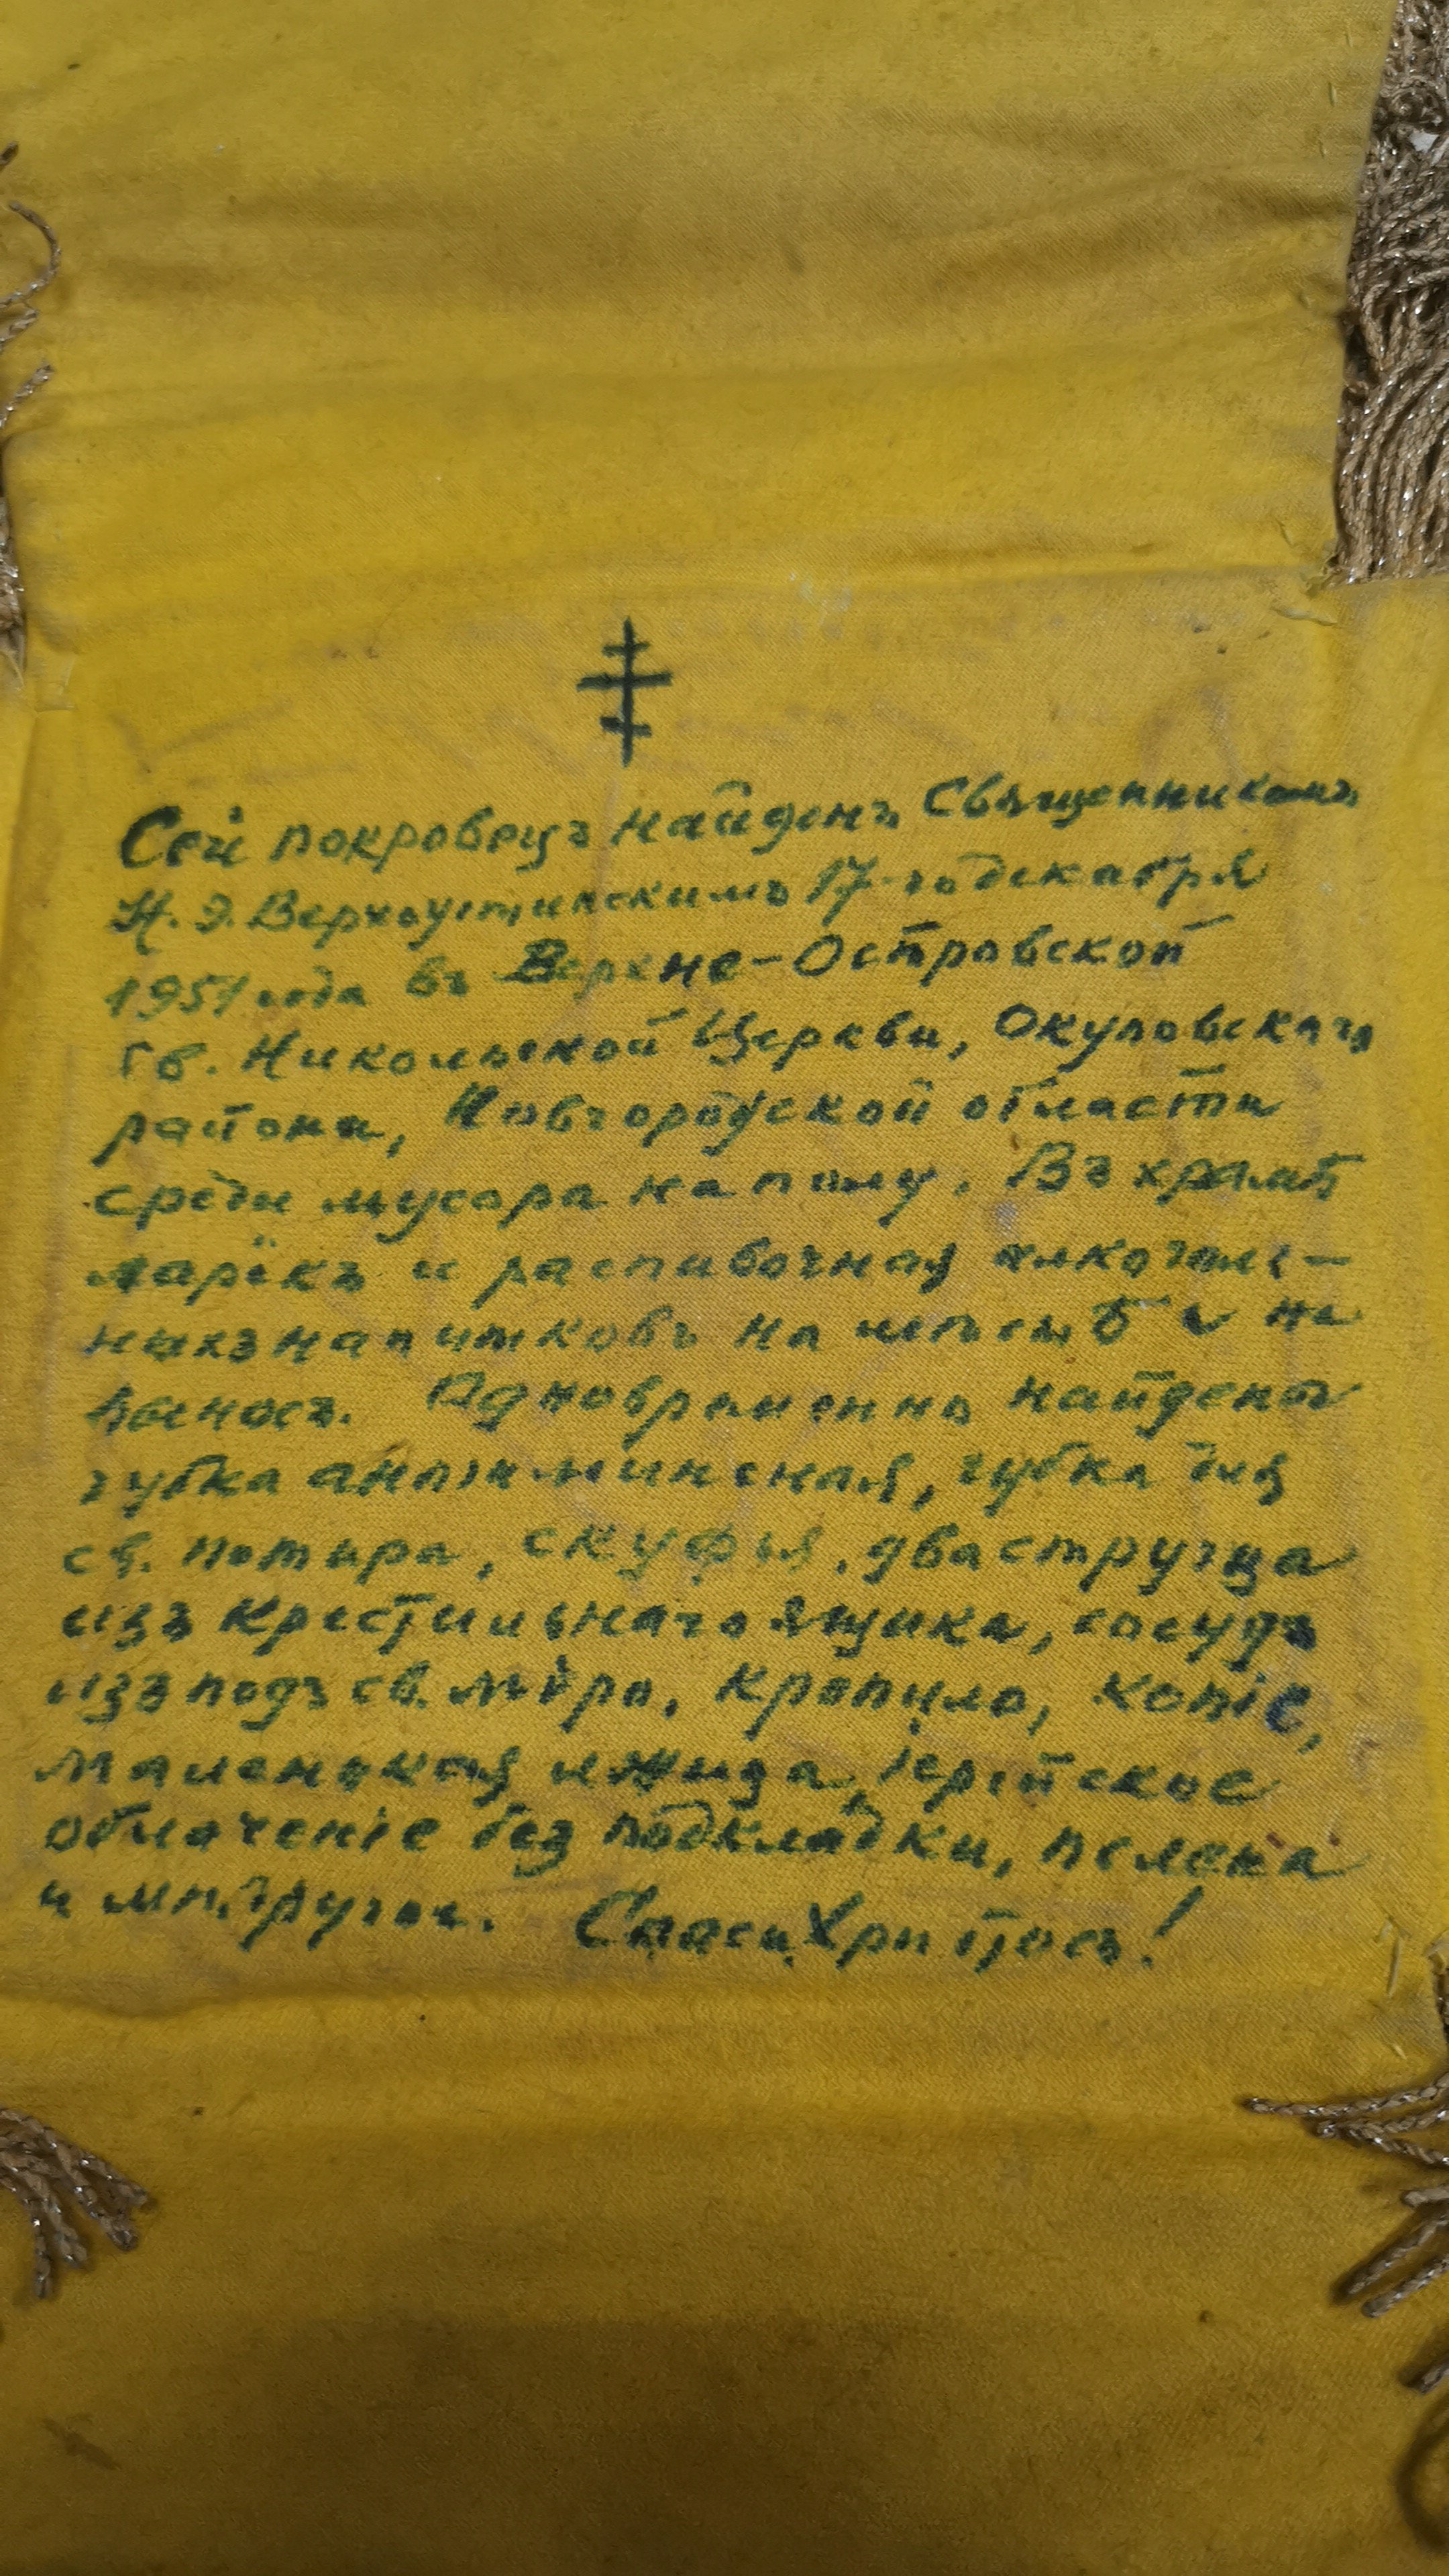 Сей покровецъ найденъ Священникомъ
Н. Э. Верхоустинскимъ 17-го декабря
1951 года въ Верхне-Островской
Св. Никольской Церкви, Окуловскаго
района, Новгородской области
среди мусора на полу. Въ храмѣ
ларёкъ и распивочная алкоголь-
ныхъ напитковъ на мѣстѣ и на
выносъ. Одновременно найдены
губка антиминсная, губка для
св. потира, скуфья, два стручца
изъ крестильнаго ящика, сосудъ
изъ подъ св. мѵра, кропило, копіе,
маленькая лжица, іерейское
облаченіе без подкладки, пелена
и мн. другое. Спаси, Христосъ!